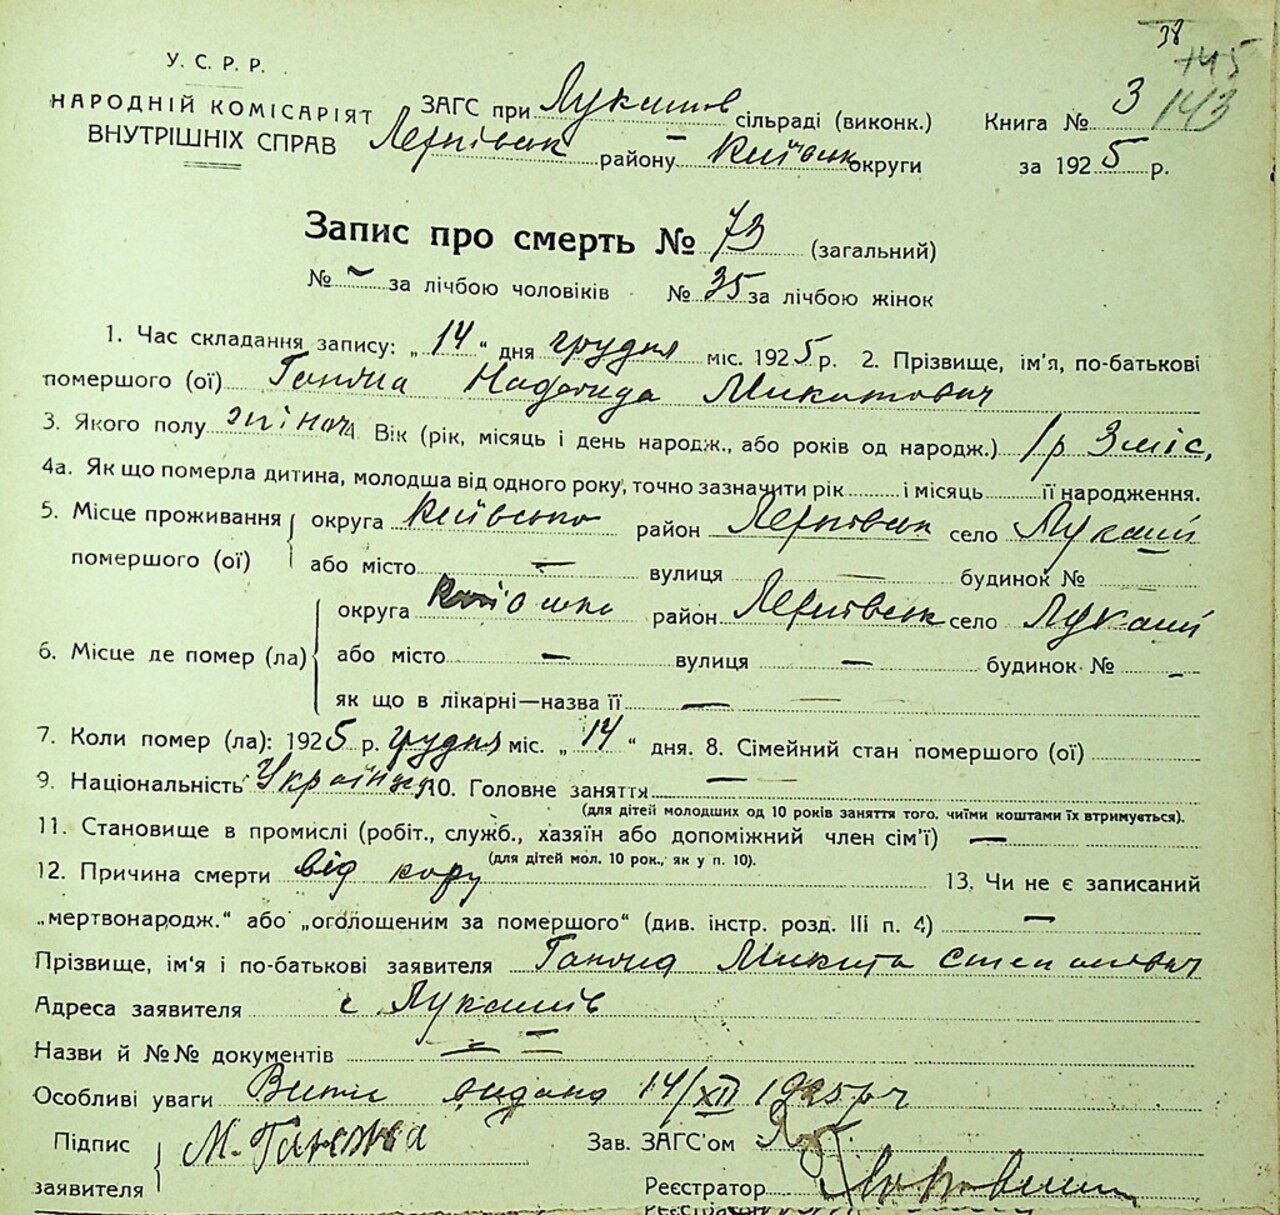 38
145
У. С. Р. Р.
НАРОДНІЙ КОМІСАРІЯТ ЗАГС при Лукашів сільраді (виконк.) Книга № 3 143
ВНУТРІШНІХ СПРАВ району Київськ округи за 1925 р.
Запис про смерть № 73 (загальний)
№ – за лічбою чоловіків № 35 за лічбою жінок
1. Час складання запису: „14“ дня грудня міс. 1925 р. 2. Прізвище, ім'я, по-батькові
помершого (ої) Микитович
3. Якого полу жіноча Вік (рік, місяць і день народж., або років од народж.) 1 р 3 міс,
4а. Як що померла дитина, молодша від одного року, точно зазначити рік і місяць її народження.
5. Місце проживання округа Київсько район село Лукаші
помершого (ої) або місто – вулиця – будинок №
округа район село Лукаші
6. Місце де помер (ла) або місто – вулиця – будинок № –
як що в лікарні—назва її —
7. Коли помер (ла): 1925 р. грудня міс. „14“ дня. 8. Сімейний стан помершого (ої)
9. Національність Українка 10. Головне заняття —
(для дітей молодших од 10 років заняття того, чиїми коштами їх втримується).
11. Становище в промислі (робіт., служб., хазяїн або допоміжний член сім'ї) —
(для дітей мол. 10 рок., як у п. 10).
12. Причина смерти від кору 13. Чи не є записаний
„мертвонародж.“ або „оголошеним за помершого“ (див. інстр. розд. III п. 4) —
Прізвище, ім'я і по-батькові заявителя Микита Степанович
Адреса заявителя с. Лукашів
Назви й №№ документів —
Особливі уваги видано 14/XII 1925 р
Підпис М. Зав. ЗАГС'ом
заявителя Реєстратор
Реєстратор